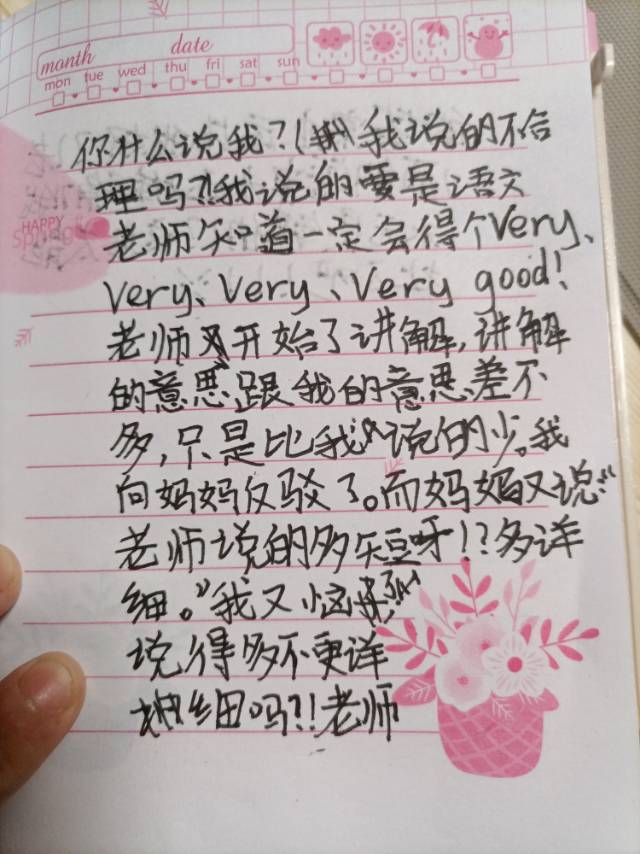 month date
mon tue wed thu fri sat sun
你什么说我?!我说的不合
理吗?!我说的要是语文
HAPPY
Spring
老师知道一定会得个Very、
Very、Very、Very good!
老师又开始了讲解,讲解
的意思跟我的意思差不
多,只是比我说的少。我
向妈妈反驳了。而妈妈又说“
老师说的多短呀!?多详
细。”我又恼了
说得多不更详
细吗?!老师